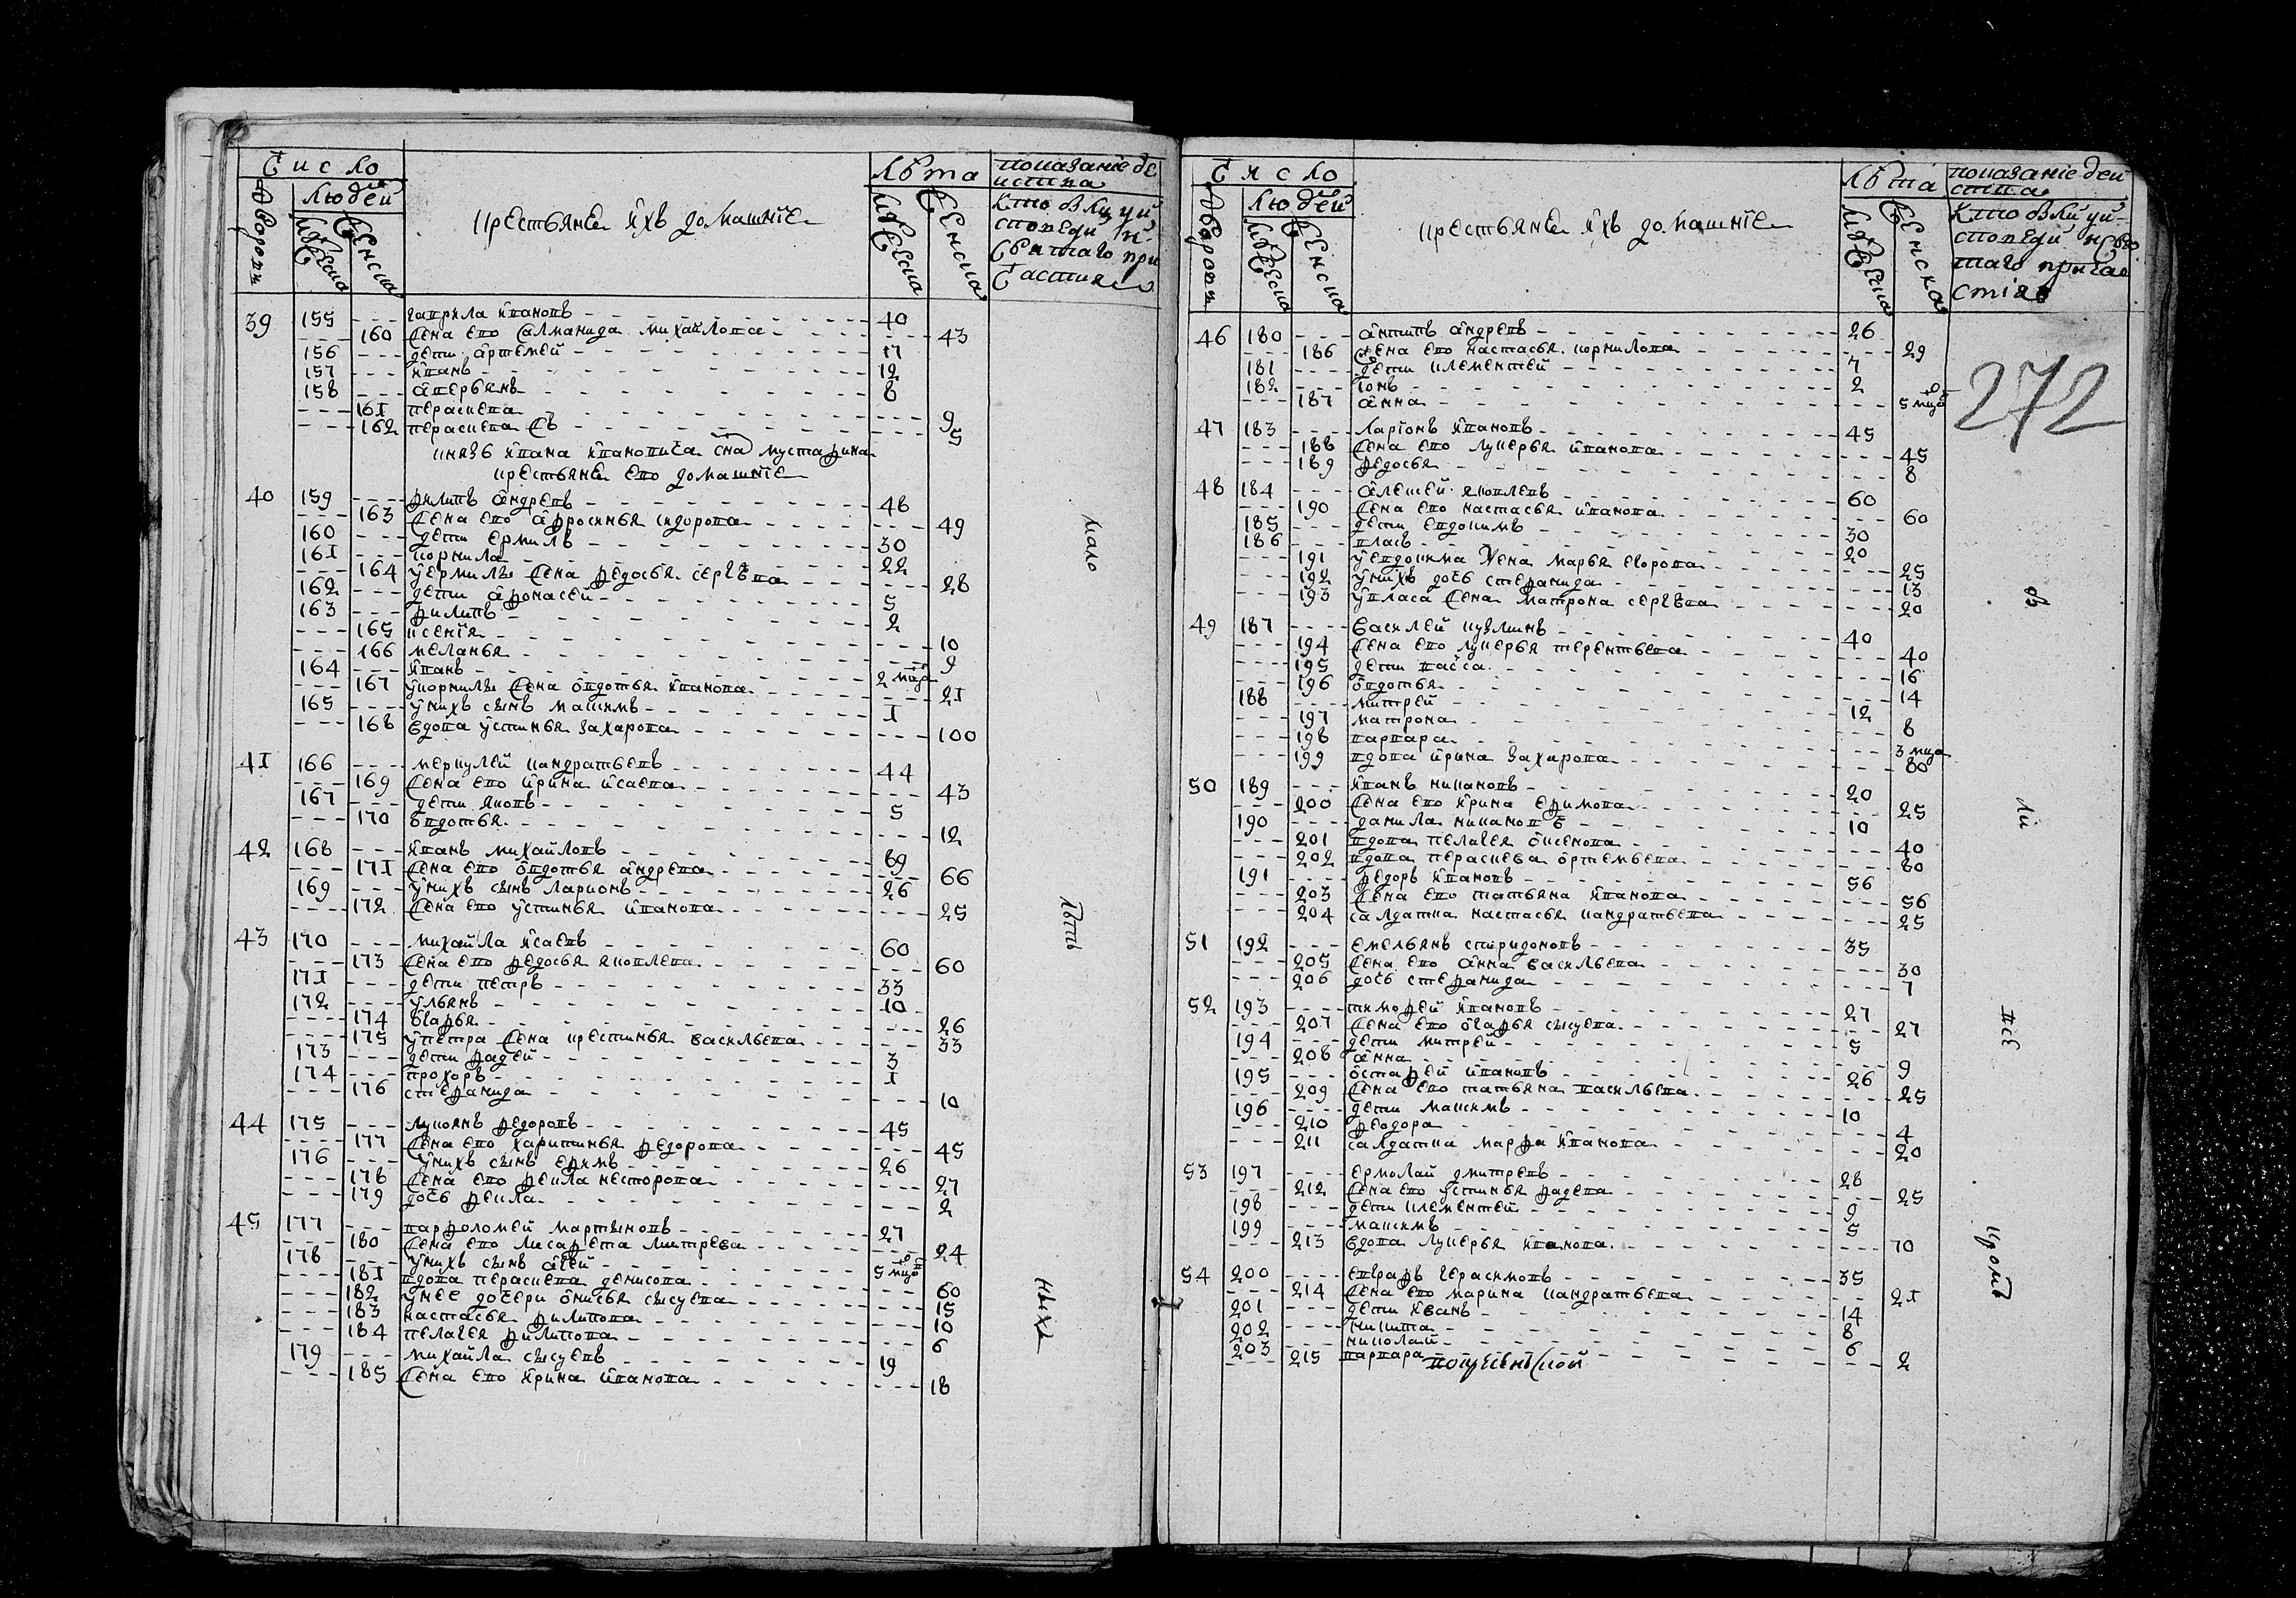 Число
Дворовъ
людей
мужеска
женска
крестьяне и ихъ домашние
лѣта
мужеска
женска
показание действа
кто был у исповеди и святаго причастия
39 155 --- гаврила ивановъ --- 40
--- 160 жена ево саламанида михайлова --- 43
156 --- дети артемей --- 17
157 --- иванъ --- 12
158 --- аверьянъ --- 8
--- 161 пераскева --- 9
--- 162 пераскева ж --- 5
князь ивана ивановича сна мустафина
крестьяне ево домашние
40 159 --- филипъ андревъ --- 48
--- 163 жена ево афросинья сидорова --- 49
160 --- дети ермилъ --- 30
161 --- кормила --- 22
--- 164 у ермилы жена федосья сергѣва --- 28
162 --- дети афонасей --- 5
163 --- филипъ --- 2
--- 165 ксения --- 10
--- 166 меланья --- 9
164 --- иванъ --- 2 мцо
--- 167 у кормилы жена овдотья иванова --- 21
165 --- у нихъ сынъ максимъ --- 1
--- 168 вдова устинья захарова --- 100
41 166 --- меркулей кандратьевъ --- 44
--- 169 жена ево ирина исаева --- 43
167 --- дети яковъ --- 5
--- 170 овдотья --- 12
42 168 --- иванъ михайловъ --- 69
--- 171 жена ево овдотья андрева --- 66
169 --- у нихъ сынъ ларионъ --- 26
--- 172 жена ево устинья иванова --- 25
43 170 --- михайла исаевъ --- 60
--- 173 жена ево федосья яковлева --- 60
171 --- дети петръ --- 33
172 --- ульянъ --- 10
--- 174 огафья --- 26
--- 175 у петра жена крестинья васильева --- 33
173 --- дети фадей --- 3
174 --- прохоръ --- 1
--- 176 стефанида --- 10
44 175 --- лукоянъ федоровъ --- 45
--- 177 жена ево харитинья федорова --- 45
176 --- у нихъ сынъ ефимъ --- 26
--- 178 жена ево фекла несторова --- 27
--- 179 дочь фекла --- 2
45 177 --- варфоломей мартыновъ --- 27
--- 180 жена ево лисафета митрева --- 24
178 --- у нихъ сынъ агей --- 5 мцо
--- 181 вдова пераскева денисова --- 60
--- 182 у нее дочери онисья сысуева --- 15
--- 183 настасья филипова --- 10
--- 184 пелагея филипова --- 6
179 --- михайла сысуевъ --- 19
--- 185 жена ево ирина иванова --- 18
мало
лѣтъ
ныхъ
Число
Дворовъ
людей
мужеска
женска
крестьяне и ихъ домашние
лѣта
мужеска
женска
показание действа
кто был у исповеди и святаго причастия
272
46 180 --- антипъ андревъ --- 26
--- 186 жена ево настасья кормилова --- 29
181 --- дети клементей --- 7
182 --- ионъ --- 2
--- 187 анна --- 5 мцо
47 183 --- ларионъ ивановъ --- 45
--- 188 жена ево лукерья иванова --- 45
--- 189 федосья --- 8
48 184 --- алексей яковлевъ --- 60
--- 190 жена ево настасья иванова --- 60
185 --- дети евдокимъ --- 30
186 --- власъ --- 20
--- 191 у евдокима жена марья егорова --- 25
--- 192 у нихъ дочь стефанида --- 13
--- 193 у власа жена матрона сергѣва --- 20
49 187 --- василей кузминъ --- 40
--- 194 жена ево лукерья терентьева --- 40
--- 195 дети васса --- 16
--- 196 овдотья --- 14
188 --- митрей --- 12
--- 197 матрона --- 8
--- 198 варвара --- 3 мца
--- 199 вдова ирина захарова --- 80
50 189 --- иванъ никановъ --- 20
--- 200 жена ево ирина ефимова --- 25
190 --- данила никановъ --- 10
--- 201 вдова пелагея оксенова --- 40
--- 202 вдова пераскева ортемьева --- 60
191 --- федоръ ивановъ --- 56
--- 203 жена ево татьяна иванова --- 56
--- 204 салдатка настасья кандратьева --- 25
51 192 --- емельянъ спиридоновъ --- 35
--- 205 жена ево анна васильева --- 30
--- 206 дочь стефанида --- 7
52 193 --- тимофей ивановъ --- 27
--- 207 жена ево огафья сысуева --- 27
194 --- дети митрей --- 5
--- 208 анна --- 9
195 --- остафей ивановъ --- 26
--- 209 жена ево татьяна васильева --- 25
196 --- дети максимъ --- 10
--- 210 феодора --- 4
--- 211 салдатка марфа иванова --- 20
53 197 --- ермолай дмитревъ --- 28
--- 212 жена ево устинья фадева --- 25
198 --- дети клементей --- 9
199 --- максимъ --- 5
--- 213 вдова лукерья иванова --- 70
54 200 --- евграфъ герасимовъ --- 35
--- 214 жена ево марина кандратьева --- 21
201 --- дети иванъ --- 14
202 --- никита --- 8
203 --- николай --- 6
--- 215 варвара --- 2
в
ли
все
кромѣ